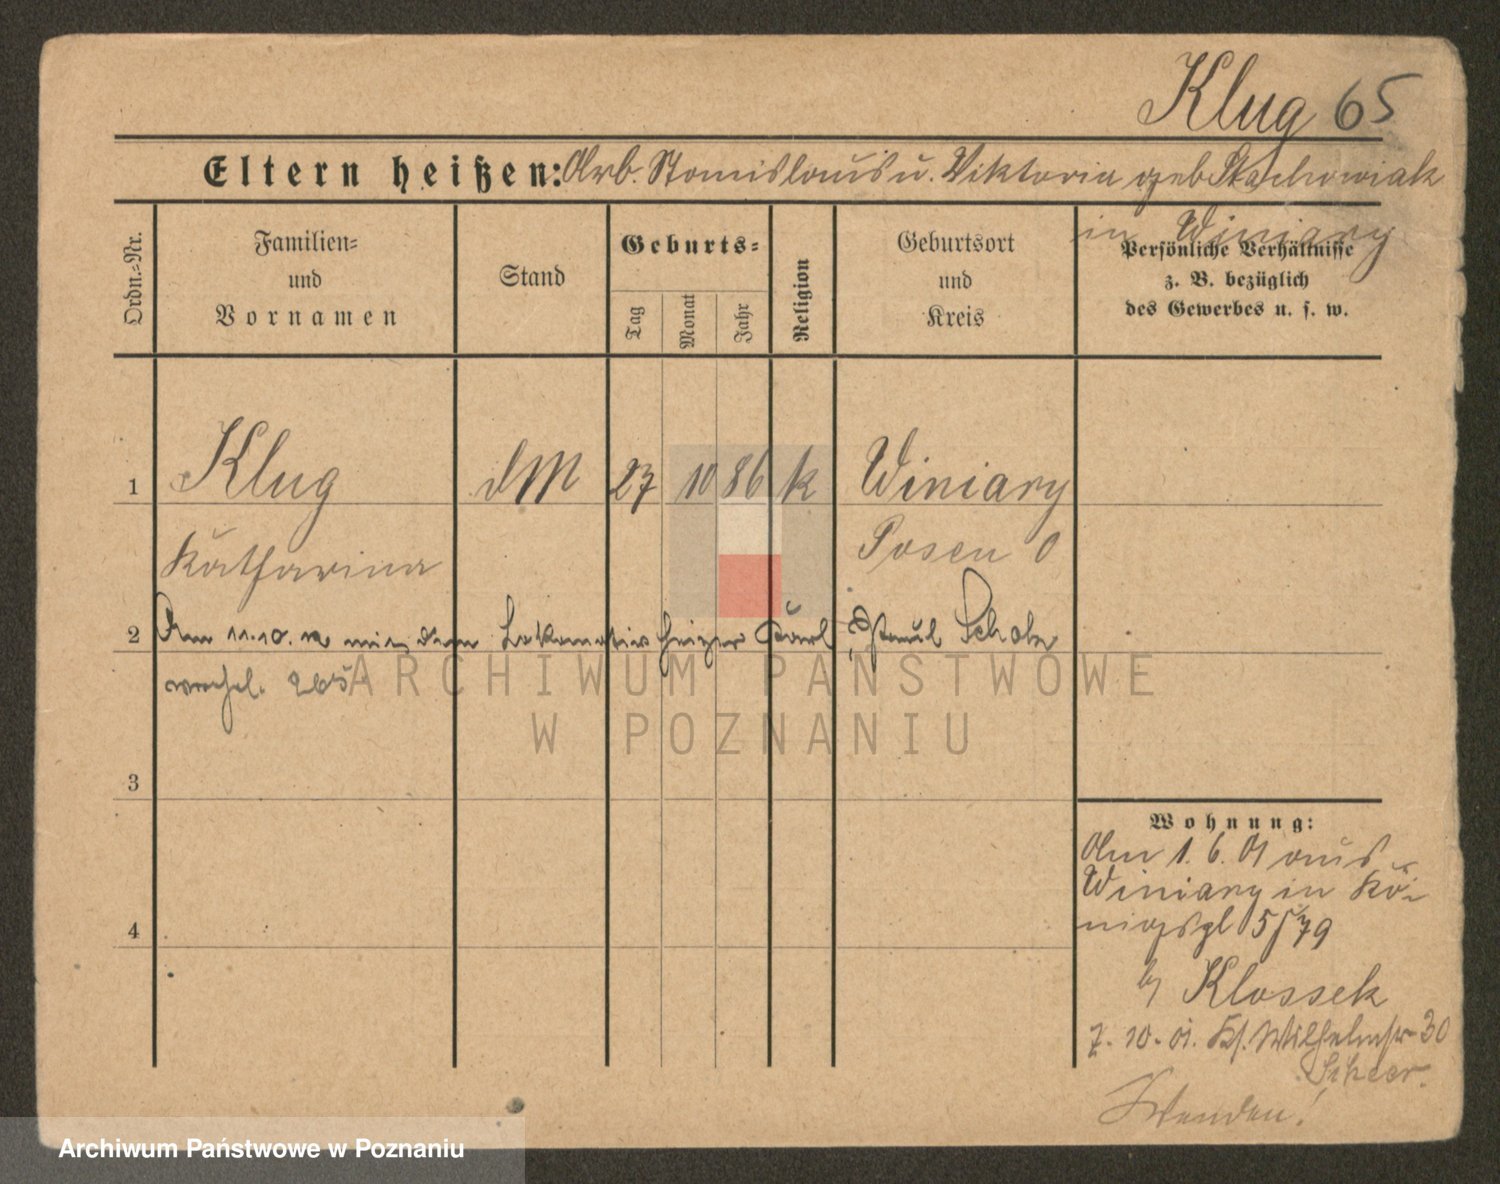 Klug 65
Eltern heißen: Arb. Stanislaus u. Viktoria geb Stachowiak
in Winiary
Ordn.=Nr.
Familien=
und
Vornamen
Stand
Geburts=
Tag
Monat
Jahr
Religion
Geburtsort
und
Kreis
Persönliche Verhältnisse
z. B. bezüglich
des Gewerbes u. s. w.
1 Klug dM 27 10 86 k Winiary
Katharina Posen O
2 Am 11.10. mit dem Lokomotivheizer Karl Paul Scholz
verehel.
3
4
Wohnung:
Am 1. 6. 01 aus
Winiary in Kö-
nigspl 5/79
by Klossek
7. 10. 01. Kl. Wilhelmstr 30
Wenden!
ARCHIWUM PAŃSTWOWE
W POZNANIU
Archiwum Państwowe w Poznaniu